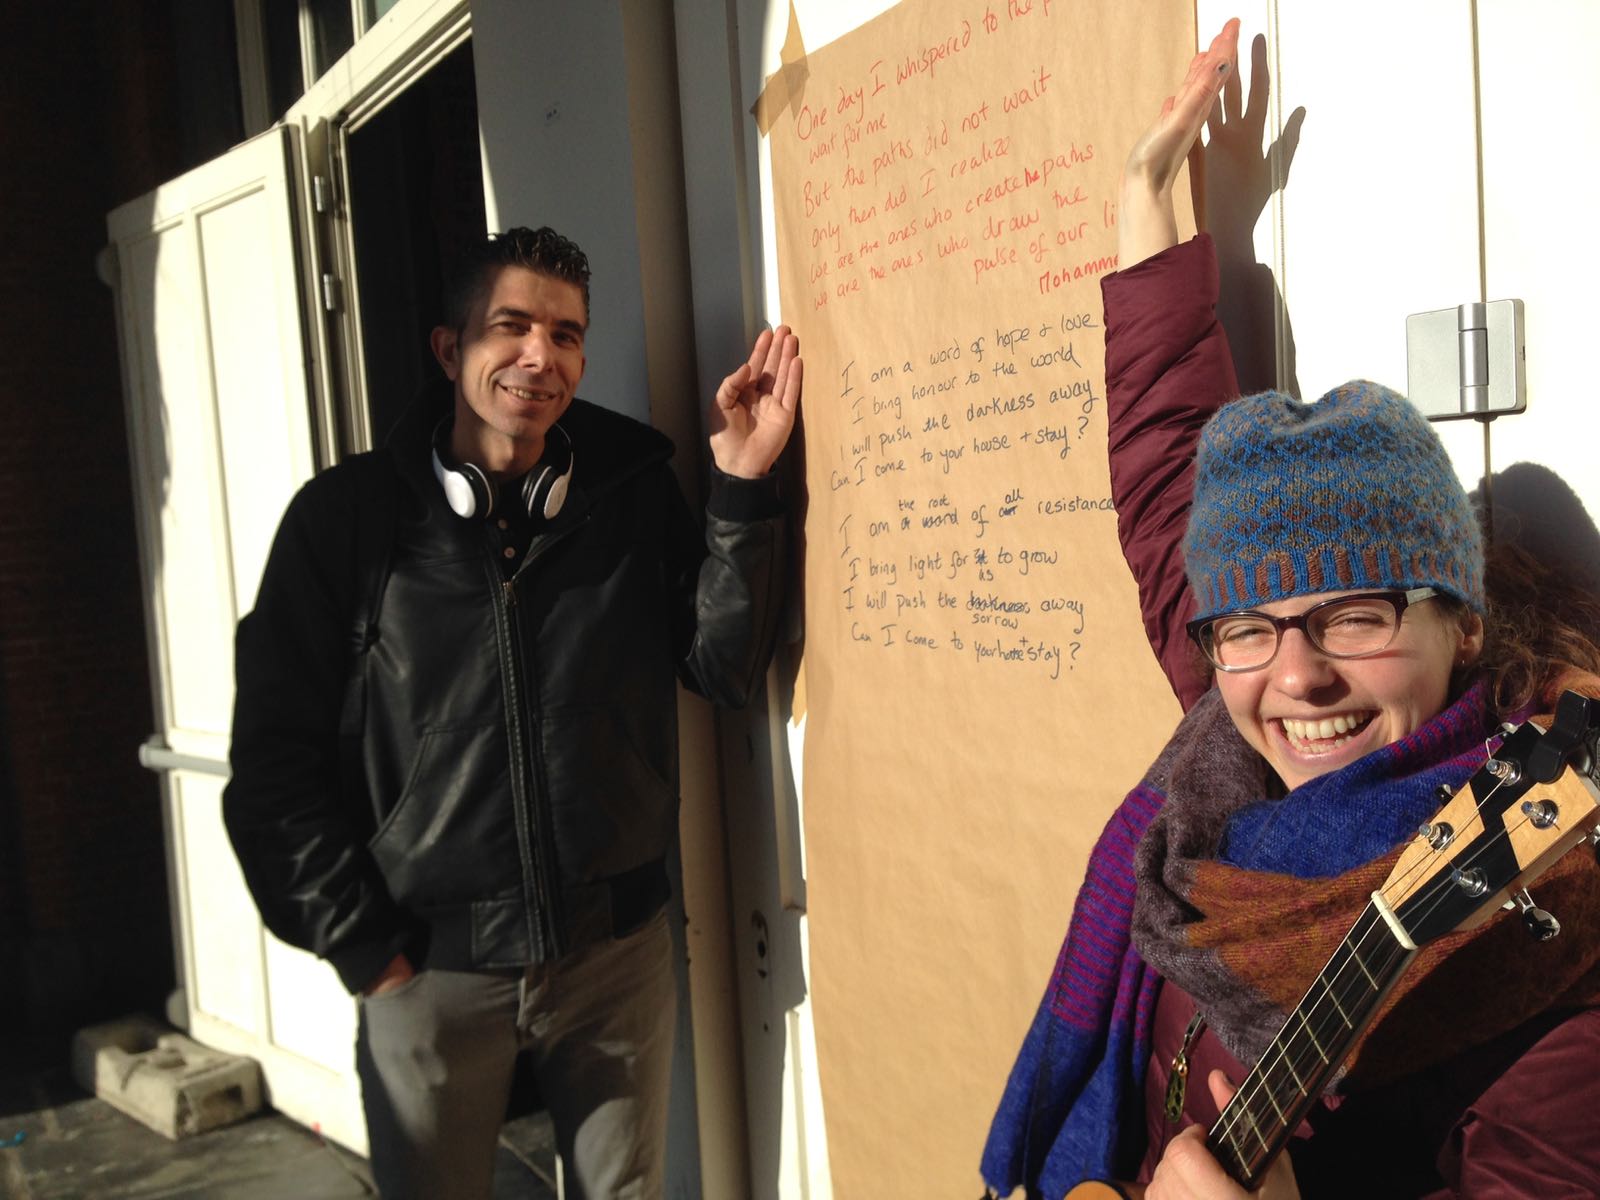 One day I whispered to the
wait for me
But the paths did not wait
only then did I realize
we are the ones who create the paths
we are the ones who draw the
pulse of our li
Mohamme
I am a word of hope + love
I bring honour to the world
I will push the darkness away
Can I come to your house + stay?
the root all
I am a word of our resistance
I bring light for it to grow
us
I will push the darkness away
sorrow
Can I come to your home + stay?